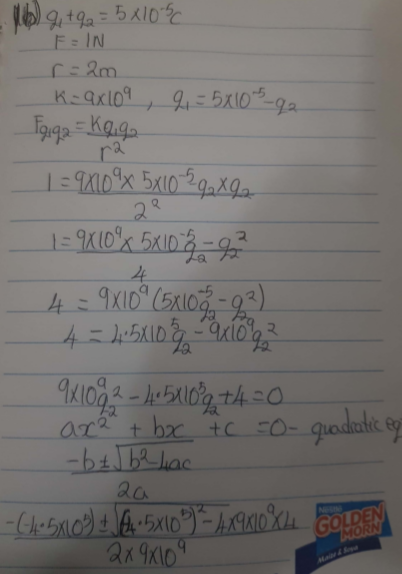 1(b) q₁+q₂ = 5×10⁻⁵C
F = 1N
r = 2m
K = 9×10⁹ , q₁ = 5×10⁻⁵-q₂
Fq₁q₂ = Kq₁q₂
r²
1 = 9×10⁹× 5×10⁻⁵-q₂×q₂
2²
1 = 9×10⁹× 5×10⁻⁵q₂ - q₂²
4
4 = 9×10⁹(5×10⁻⁵q₂ - q₂²)
4 = 4.5×10⁵q₂ - 9×10⁹q₂²
9×10⁹q₂² - 4.5×10⁵q₂ + 4 = 0
ax² + bx + c = 0 - quadratic eq
-b ± √b²-4ac
2a
-(-4.5×10⁵) ± √(-4.5×10⁵)² - 4×9×10⁹×4
2×9×10⁹
Nestle
GOLDEN
MORN
Maize & Soya